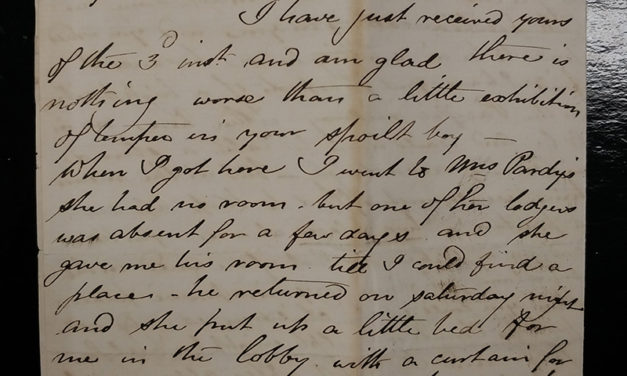 I have just received yours
of the 3d inst. and am glad there is
nothing worse than a little exhibition
of temper in your spoilt boy —
When I got here I went to Mrs Pardy's
she had no room. but one of her lodgers
was absent for a few days and she
gave me his room till I could find a
place - he returned on saturday night
and she put up a little bed for
me in the lobby with a curtain for